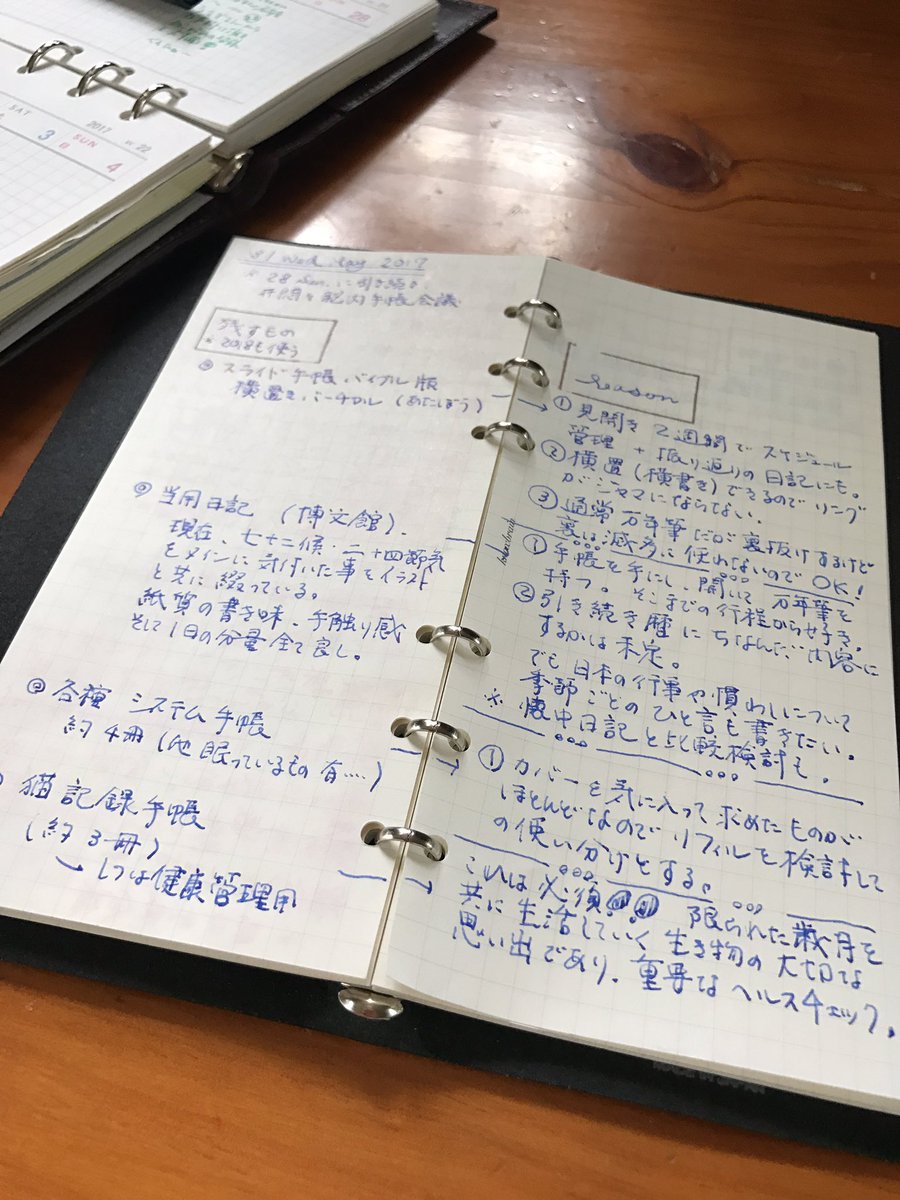 28
SAT
3
日
SUN
2017
w 22
4
31 Wed. May 2017
* 28 Sun. に引き続き
脳内手帳会議
残すもの
* 2018も使う
スライド手帳 バイブル版
横置きバーチカル (あたぼう)
当用日記 (博文館).
現在、七十二候・二十四節気
をメインに気付いた事をイラスト
と共に綴っている。
紙質の書き味・手触り感
そして1日の分量全て良し。
各種 システム手帳
約4冊 (他 眠っているもの 有....)
猫記録手帳
(約3冊)
1つは健康管理用
reason
① 見開き2週間でスケジュール
管理 + 振り返りの日記にも。
② 横置(横書き)できるのでリング
がジャマにならない。
③ 通常万年筆だが裏抜けするけど
裏は滅多に使わないのでOK!
① 手帳を手にし、開いて万年筆を
持つ。そこまでの行程から好き。
② 引き続き暦にちなんだ内容に
するかは未定。
でも日本の行事や慣わしについて
季節ごとのひと言も書きたい。
※ 懐中日記と比較検討も。
① カバーを気に入って求めたものが
ほとんどなのでリフィルを検討して
の使い分けとする。
これは必須 限られた歳月を
共に生活していく生き物の大切な
思い出であり、重要なヘルスチェック。